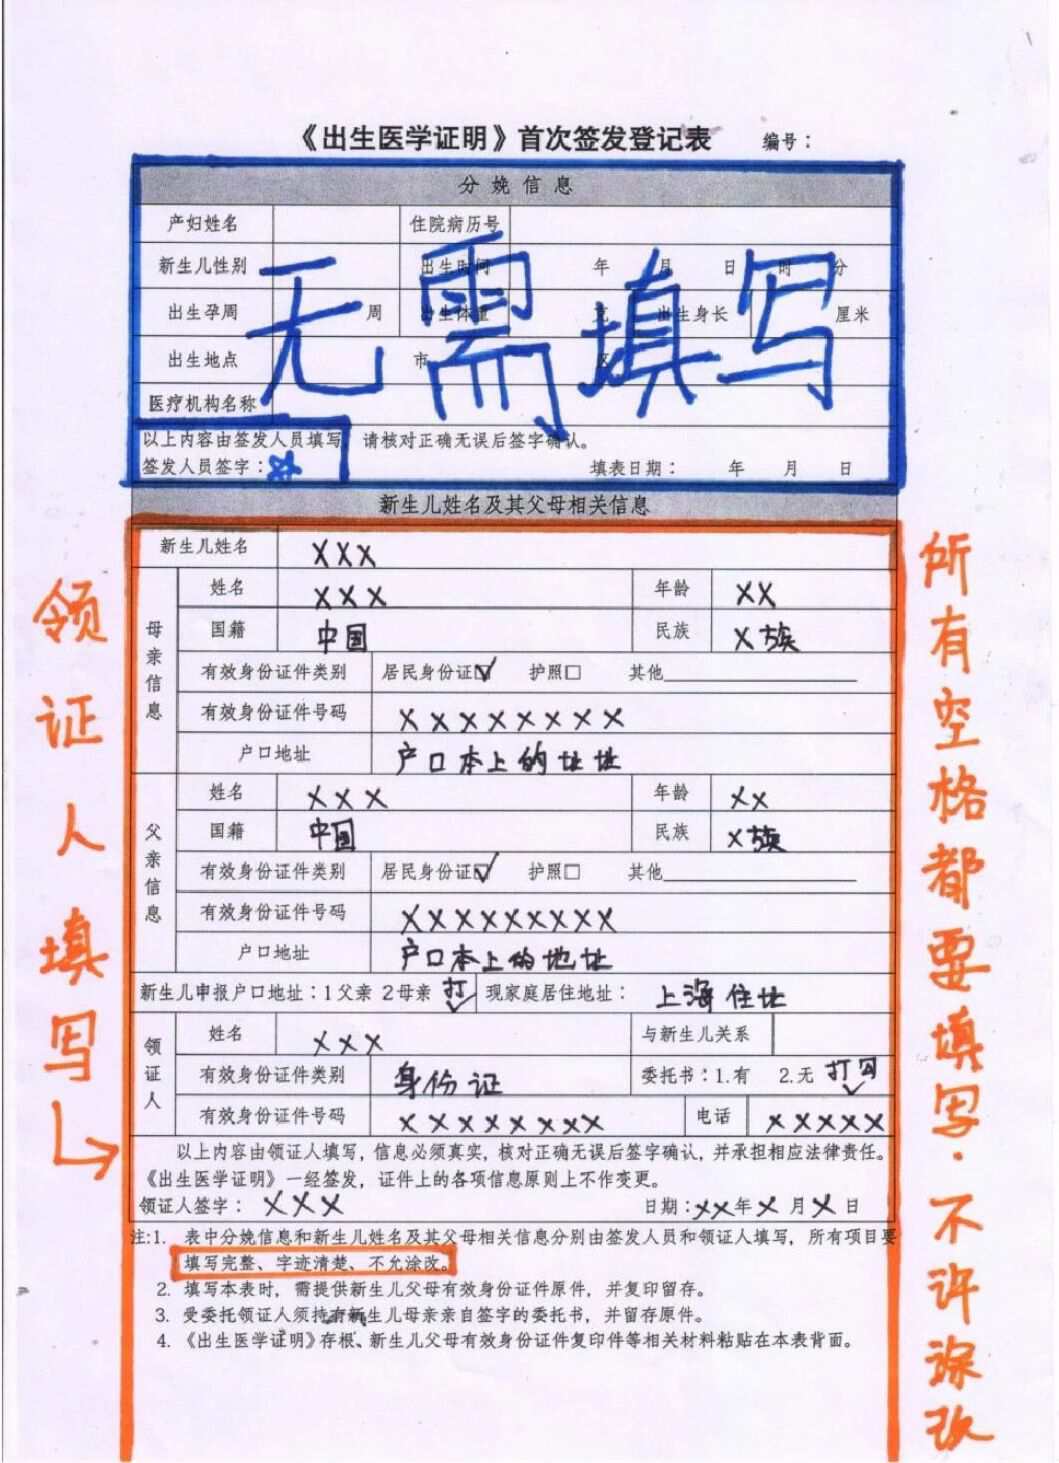 《出生医学证明》首次签发登记表 编号：
分娩信息
产妇姓名 住院病历号
新生儿性别 出生时间 年 月 日 时 分
出生孕周 周 出生体重 克 出生身长 厘米
出生地点 市 区
医疗机构名称
无需填写
以上内容由签发人员填写，请核对正确无误后签字确认。
签发人员签字： 填表日期： 年 月 日
新生儿姓名及其父母相关信息
新生儿姓名 XXX
母亲信息
姓名 XXX 年龄 XX
国籍 中国 民族 X族
有效身份证件类别 居民身份证☑ 护照□ 其他
有效身份证件号码 XXXXXXXX
户口地址 户口本上的地址
父亲信息
姓名 XXX 年龄 XX
国籍 中国 民族 X族
有效身份证件类别 居民身份证☑ 护照□ 其他
有效身份证件号码 XXXXXXXXX
户口地址 户口本上的地址
新生儿申报户口地址：1父亲 2母亲 打✓ 现家庭居住地址： 上海住址
领证人
姓名 XXX 与新生儿关系
有效身份证件类别 身份证 委托书：1.有 2.无 打勾✓
有效身份证件号码 XXXXXXXX 电话 XXXXX
以上内容由领证人填写，信息必须真实，核对正确无误后签字确认，并承担相应法律责任。
《出生医学证明》一经签发，证件上的各项信息原则上不作变更。
领证人签字： XXX 日期：XX年X月X日
注:1. 表中分娩信息和新生儿姓名及其父母相关信息分别由签发人员和领证人填写，所有项目要
填写完整、字迹清楚、不允涂改。
2. 填写本表时，需提供新生儿父母有效身份证件原件，并复印留存。
3. 受委托领证人须持有新生儿母亲亲自签字的委托书，并留存原件。
4. 《出生医学证明》存根、新生儿父母有效身份证件复印件等相关材料粘贴在本表背面。
领证人填写
所有空格都要填写.不许涂改